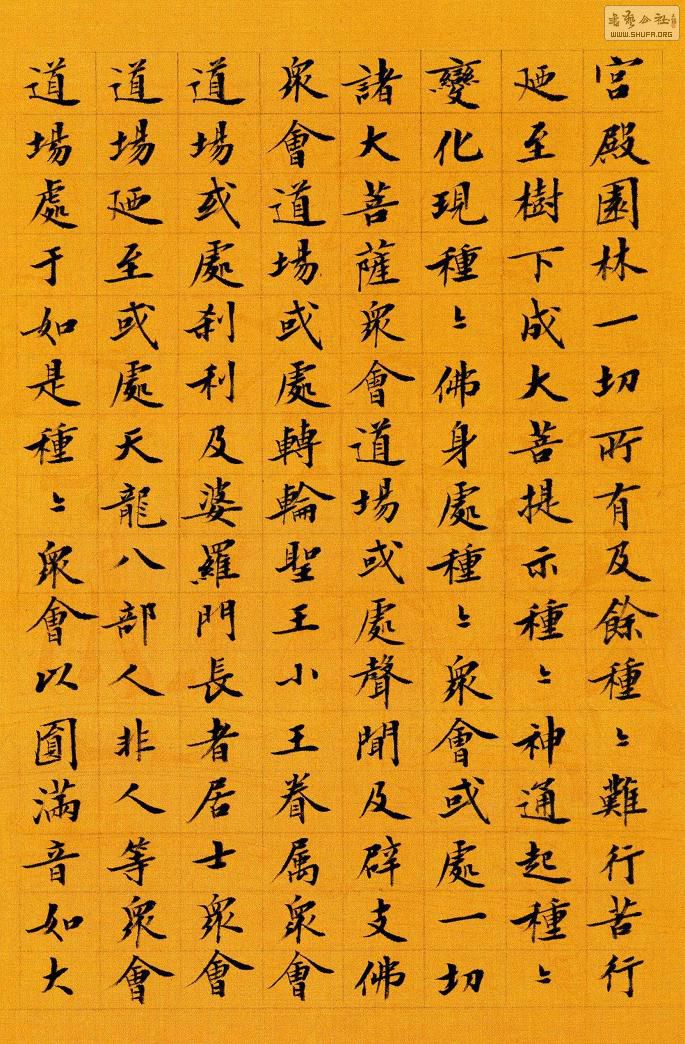 宮殿園林一切所有及餘種〻難行苦行
廼至樹下成大菩提示種〻神通起種〻
變化現種〻佛身處種〻衆會或處一切
諸大菩薩衆會道場或處聲聞及辟支佛
衆會道場或處轉輪聖王小王眷属衆會
道場或處刹利及婆羅門長者居士衆會
道場廼至或處天龍八部人非人等衆會
道場處于如是種〻衆會以圓滿音如大
書藝公社
WWW.SHUFA.ORG